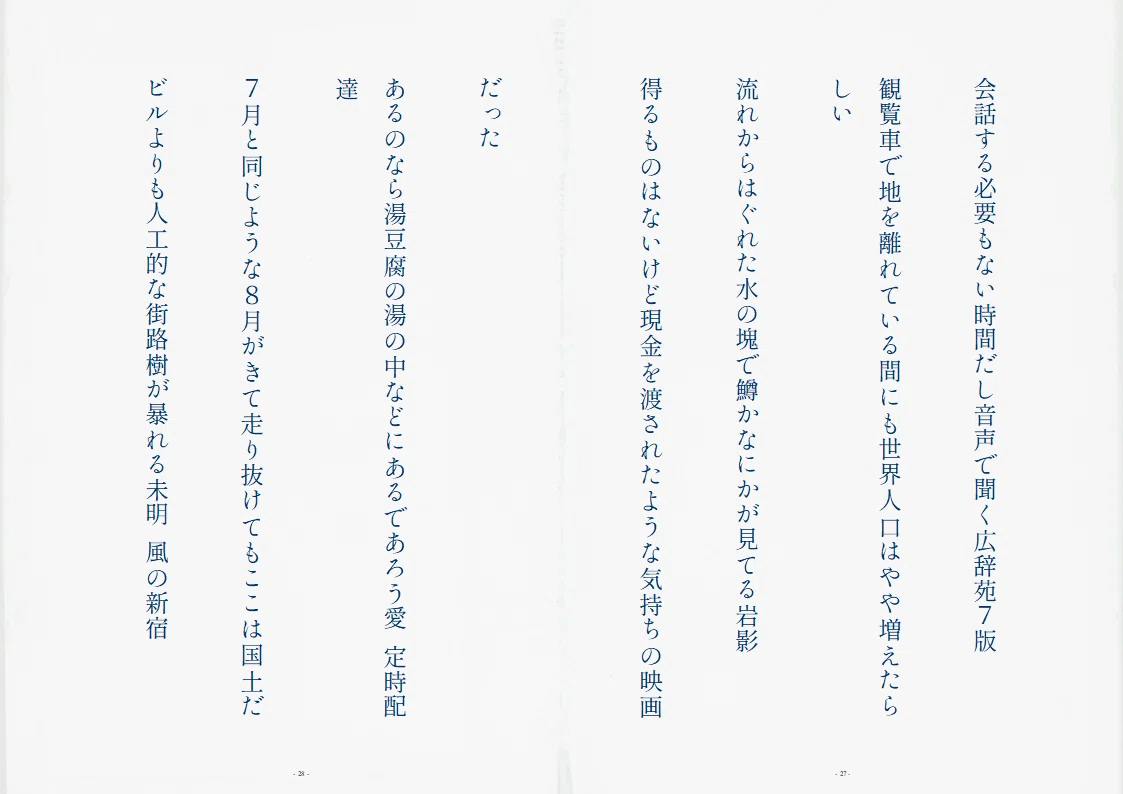 会話する必要もない時間だし音声で聞く広辞苑７版
観覧車で地を離れている間にも世界人口はやや増えたら
しい
流れからはぐれた水の塊で鱒かなにかが見てる岩影
得るものはないけど現金を渡されたような気持ちの映画
- 27 -
だった
あるのなら湯豆腐の湯の中などにあるであろう愛 定時配
達
７月と同じような８月がきて走り抜けてもここは国土だ
ビルよりも人工的な街路樹が暴れる未明 風の新宿
- 28 -